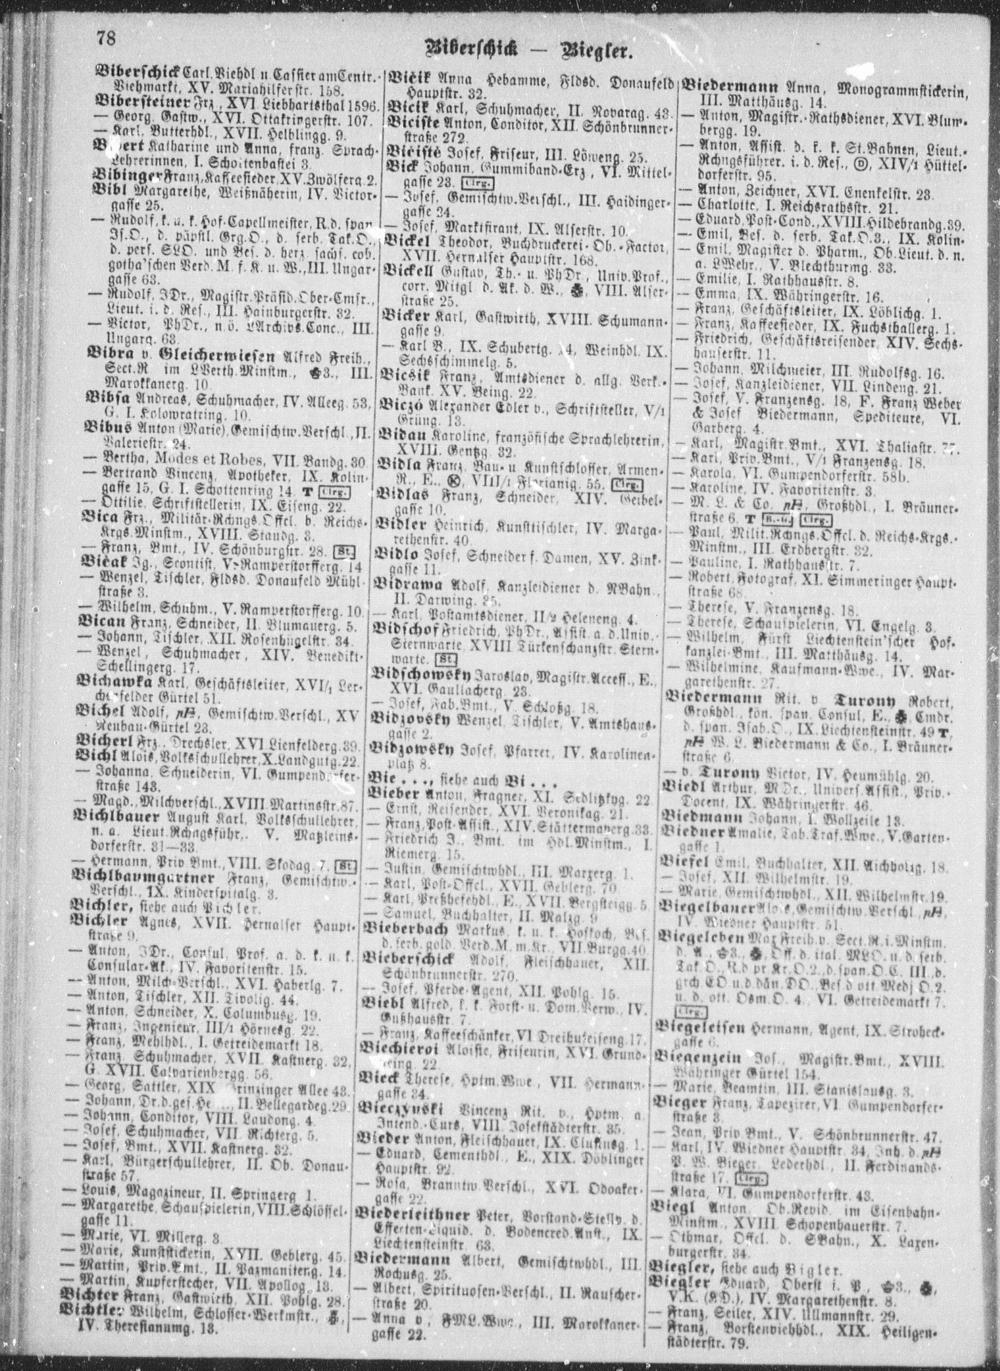 78
Biberschick — Biegler.
Biberschick Carl, Viehdl u Cassier am Centr.-
Viehmarkt, XV. Mariahilferstr. 158.
Bibersteiner Frz., XVI Liebhartsthal 1596.
— Georg, Gastw., XVI. Ottakringerstr. 107.
— Karl, Butterhdl., XVII. Helblingg. 9.
Katharine und Anna, franz. Sprach-
Lehrerinnen, I. Schottenbastei 3.
Bibinger Franz, Kaffeesieder, XV. Zwölferg. 2.
Bibl Margarethe, Weißnäherin, IV. Victor-
gasse 25.
— Rudolf, k. u. k. Hof-Capellmeister, R. d. span
Is. O., d. päpstl. Grg. O., d. serb. Tak. O.,
d. pers. SLO. und Bes. d. herz. sachs. cob.
gotha'schen Verd. M. f. K. u. W., III. Ungar-
gasse 63.
— Rudolf, JDr., Magistr. Präsid. Ober-Comsr.,
Lieut. i. d. Res., III. Hainburgerstr. 32.
— Victor, PhDr., n. ö. LArchivs. Conc., III.
Ungarg. 63.
Bibra v. Gleicherwiesen Alfred Freih.,
Sect. R im LVerth. Minstm., 3., III.
Marokkanerg. 10.
Bibsa Andreas, Schuhmacher, IV. Alleeg. 53,
G. I. Kolowratring. 10.
Bibus Anton (Marie), Gemischtw. Verschl., II.
Valeriestr. 24.
— Bertha, Modes et Robes, VII. Bandg. 30.
— Bertrand Vincenz, Apotheker, IX. Kolin-
gasse 15, G. I. Schottenring 14. T Clrg.
— Ottilie, Schriftstellerin, IX. Eiseng. 22.
Bica Frz., Militär-Rchngs. Offcl. b. Reichs-
Krgs. Minstm., XVIII. Staudg. 3.
— Franz, Bmt., IV. Schönburgstr. 28. St.
Bicak Jg., Scontist, V. Ramperstorfferg. 14
— Wenzel, Tischler, Fldsd. Donaufeld Mühl-
straße 3.
— Wilhelm, Schuhm., V. Ramperstorfferg. 10.
Bican Franz, Schneider, II. Blumauerg. 5.
— Johann, Tischler, XII. Rosenhügelstr. 34.
— Wenzel, Schuhmacher, XIV. Benedikt-
Schellingerg. 17.
Bichawka Karl, Geschäftsleiter, XVI/1 Ler-
chenfelder Gürtel 51.
Bichel Adolf, pH, Gemischtw. Verschl., XV
Neubau-Gürtel 23.
Bicherl Frz., Drechsler, XVI Lienfelderg. 39.
Bichl Alois, Volksschullehrer, X. Landgutg. 22.
— Johanna, Schneiderin, VI. Gumpendorfer-
straße 143.
— Magd., Milchverschl., XVIII. Martinsstr. 87.
Bichlbauer August Karl, Volksschullehrer,
n. a. Lieut. Rchngsführ., V. Matzleins-
dorferstr. 31—33.
— Hermann, Priv. Bmt., VIII. Skodag. 7. St.
Bichlbaumgartner Franz, Gemischtw.-
Verschl., IX. Kinderspitalg. 3.
Bichler, siehe auch Pichler.
Bichler Agnes, XVII. Hernalser Haupt-
straße 9.
— Anton, JDr., Consul, Prof. a. d. k. u. k.
Consular-Ak., IV. Favoritenstr. 15.
— Anton, Milch-Verschl., XVI. Haberlg. 7.
— Anton, Tischler, XII. Tivolig. 44.
— Anton, Schneider, X. Columbusg. 19.
— Franz, Ingenieur, III/1 Hörnesg. 22.
— Franz, Mehlhdl., I. Getreidemarkt 18.
— Franz, Schuhmacher, XVII. Kastnerg. 32,
G. XVII. Calvarienbergg. 56.
— Georg, Sattler, XIX Grinzinger Allee 43.
— Johann, Dr. d. ges. He II. Bellegardeg. 29.
— Johann, Conditor, VIII. Laudong. 4.
— Josef, Schuhmacher, VII. Richterg. 5.
— Josef, Bmt., XVII. Kastnerg. 32.
— Karl, Bürgerschullehrer, II. Ob. Donau-
straße 57.
— Louis, Magazineur, II. Springerg 1.
— Margarethe, Schauspielerin, VIII. Schlössel-
gasse 11.
— Marie, VI. Millerg. 3.
— Marie, Kunststickerin, XVII. Geblerg. 45.
— Martin, Priv. Bmt., II. Pazmaniteng. 14.
— Martin, Kupferstecher, VII. Apollog. 13.
Bichter Franz, Gastwirth, XII. Pohlg. 28.
Bichtler Wilhelm, Schlosser-Werkmstr.,
IV. Theresianumg. 13.
Bičik Anna Hebamme, Fldsd. Donaufeld
Hauptstr. 32.
Bicik Karl, Schuhmacher, II. Novarag. 43.
Biciste Anton, Conditor, XII. Schönbrunner-
straße 272.
Bičiště Josef, Friseur, III. Löweng. 25.
Bick Johann, Gummiband-Erz., VI. Mittel-
gasse 23. Clrg.
— Josef, Gemischtw. Verschl., III. Haidinger-
gasse 34.
— Josef, Marktfirant, IX. Alserstr. 10.
Bickel Theodor, Buchdruckerei-Ob.-Factor,
XVII. Hernalser Hauptstr. 168.
Bickell Gustav, Th.- u. PhDr., Univ. Prof.,
corr. Mitgl. d. Ak. d. W., VIII. Alser-
straße 25.
Bicker Karl, Gastwirth, XVIII. Schumann-
gasse 9.
— Karl B., IX. Schubertg. 14, Weinhdl. IX.
Sechsschimmelg. 5.
Bicsik Franz, Amtsdiener d. allg. Verk.-
Bank. XV. Being. 22.
Biczó Alexander Edler v., Schriftsteller, V/1
Grüng. 13.
Bidau Karoline, französische Sprachlehrerin,
XVIII. Gentzg. 32.
Bidla Franz, Bau- u. Kunstschlosser, Armen-
R., E., K, VIII/1 Florianig. 55. Clrg.
Bidlas Franz, Schneider, XIV. Geibel-
gasse 10.
Bidler Heinrich, Kunsttischler, IV. Marga-
rethenstr. 40.
Bidlo Josef, Schneider f. Damen, XV. Zink-
gasse 11.
Bidrawa Adolf, Kanzleidiener d. NBahn.,
II. Darwing. 25.
— Karl, Postamtsdiener, II/2 Heleneng. 4.
Bidschof Friedrich, PhDr., Assist. a. d. Univ.-
Sternwarte, XVIII Türkenschanzstr. Stern-
warte. St.
Bidschowsky Jaroslav, Magistr. Access., E.,
XVI. Gaullacherg. 23.
— Josef, Fab. Bmt., V. Schloßg. 18.
Bidzovsky Wenzel, Tischler, V. Amtshaus-
gasse 2.
Bidzowsky Josef, Pfarrer, IV. Karolinen-
platz 8.
Bie . . ., siehe auch Bi . . .
Bieber Anton, Fragner, XI. Sedlitzkyg. 22
— Ernst, Reisender, XVI. Veronikag. 21.
— Franz, Post-Assist., XIV. Stättermayerg. 33.
— Friedrich J., Bmt. im Hdl. Minstm., I.
Riemerg. 15.
— Justin, Gemischtwhdl., III. Marxerg. 1.
— Karl, Post-Offcl., XVII. Geblerg. 70
— Karl, Preßhefehdl., E., XVII. Bergsteigg. 5.
— Samuel, Buchhalter, II. Malzg. 9
Bieberbach Markus, k. u. k. Hofkoch, Bes.
d. serb. gold. Verd. M. m. Kr., VII. Burgg. 40
Bieberschick Adolf, Fleischhauer, XII.
Schönbrunnerstr. 270.
— Josef, Pferde-Agent, XII. Pohlg. 15.
Biebl Alfred, k. k. Forst- u. Dom. Verw., IV.
Gußhausstr. 7.
— Franz, Kaffeeschänker, VI Dreihufeiseng. 17.
Biechieroi Aloisie, Friseurin, XVI. Grund-
steing. 22.
Bieck Therese, Hptm. Wwe., VII. Hermann-
gasse 34.
Bieczynski Vincenz Rit. v., Hptm. a.
Intend.-Curs, VIII Josefstädterstr. 35.
Bieder Anton, Fleischhauer, IX. Clusiusg. 1.
— Eduard, Cementhdl., E., XIX. Döblinger
Hauptstr. 92.
— Rosa, Branntw. Verschl., XVI. Odoaker-
gasse 22.
Biederleithner Peter, Vorstand-Stellv. d.
Effecten-Liquid. d. Bodencred. Anst., IX.
Liechtensteinstr. 63.
Biedermann Albert, Gemischtwhdl., III.
Rochusg. 25.
— Albert, Spirituosen-Verschl., II. Rauscher-
straße 20.
— Anna v., FML. Wwe., III. Marokkaner-
gasse 22.
Biedermann Anna, Monogrammstickerin,
III. Matthäusg. 14.
— Anton, Magistr.-Rathsdiener, XVI. Blum-
bergg. 19.
— Anton, Assist. d. k. k. St. Bahnen, Lieut.-
Rchngsführer. i. d. Res., D, XIV/1 Hüttel-
dorferstr. 95.
— Anton, Zeichner, XVI. Enenkelstr. 23.
— Charlotte, I. Reichsrathsstr. 21.
— Eduard, Post-Cond., XVIII. Hildebrandg. 39.
— Emil, Bes. d. serb. Tak. O. 3., IX. Kolin-
— Emil, Magister d. Pharm., Ob. Lieut. d. n.
a. LWehr., V. Blechthurmg. 33.
— Emilie, I. Rathhausstr. 8.
— Emma, IX. Währingerstr. 16.
— Franz, Geschäftsleiter, IX. Löblichg. 1.
— Franz, Kaffeesieder, IX. Fuchsthallerg. 1.
— Friedrich, Geschäftsreisender, XIV. Sechs-
hauserstr. 11.
— Johann, Milchmeier, III. Rudolfsg. 16.
— Josef, Kanzleidiener, VII. Lindeng. 21.
— Josef, V. Franzensg. 18, F. Franz Weber
& Josef Biedermann, Spediteure, VI.
Garberg. 4.
— Karl, Magistr. Bmt., XVI. Thaliastr.
— Karl, Priv. Bmt., V/1 Franzensg. 18.
— Karola, VI. Gumpendorferstr. 58b.
— Karoline, IV. Favoritenstr. 3.
— M. L. & Co. pH, Großhdl., I. Bräuner-
straße 6. T B.-u. Clrg.
— Paul, Milit. Rchngs. Offcl. d. Reichs-Krgs.-
Minstm., III. Erdbergstr. 32.
— Pauline, I. Rathhausstr. 7.
— Robert, Fotograf, XI. Simmeringer Haupt-
straße 68.
— Therese, V. Franzensg. 18.
— Therese, Schauspielerin, VI. Engelg. 3.
— Wilhelm, Fürst Liechtenstein'scher Hof-
kanzlei-Bmt., III. Matthäusg. 14.
— Wilhelmine, Kaufmann-Wwe., IV. Mar-
garethenstr. 27.
Biedermann Rit. v Turony Robert,
Großhdl., kön. span. Consul, E., Cmdr.
d. span. Isab. O., IX. Liechtensteinstr. 49 T,
pH W. L. Biedermann & Co., I. Bräuner-
straße 6.
— v. Turony Victor, IV. Heumühlg. 20.
Biedl Arthur, MDr., Univers. Assist., Priv.-
Docent, IX. Währingerstr. 46.
Biedmann Johann, I. Wollzeile 13.
Biedner Amalie, Tab. Traf. Wwe., V. Garten-
gasse 1.
Biefel Emil, Buchhalter, XII. Aichholzg. 18.
— Josef, XII. Wilhelmstr. 19.
— Marie, Gemischtwhdl., XII. Wilhelmstr. 19.
Biegelbauer Alois, Gemischtw. Verschl., pH,
IV. Wiedner Hauptstr. 51.
Biegeleben Max Freih. v. Sect. R. i. Minstm.
d. A., 3., Off. d. ital. MLO. u. d. serb.
Tak. O., R. d pr Kr. O. 2., d. span. O. C. III, d.
grch EO u. d dän. DO., Bes. d ott. Medj O. 2.
u. d. ott. Osm. O. 4., VI. Getreidemarkt 7.
Clrg.
Biegeleisen Hermann, Agent, IX. Strobeck-
gasse 6.
Biegenzein Jos., Magistr. Bmt., XVIII.
Währinger Gürtel 154.
— Marie, Beamtin, III. Stanislausg. 3.
Bieger Franz, Tapezirer, VI. Gumpendorfer-
straße 3.
— Jean, Priv. Bmt., V. Schönbrunnerstr. 47.
— Karl, IV. Wiedner Hauptstr. 34, Inh. d. pH
P. W. Bieger, Lederhdl., II. Ferdinands-
straße 17. Clrg.
— Klara, VI. Gumpendorferstr. 43.
Biegl Anton, Ob. Revid. im Eisenbahn-
Minstm., XVIII. Schopenhauerstr. 7.
— Othmar, Offcl. d. SBahn., X. Laxen-
burgerstr. 34.
Biegler, siehe auch Bigler.
Biegler Eduard, Oberst i. P., 3.,
V.K. (K.D.), IV. Margarethenstr. 8.
— Franz, Seiler, XIV. Ullmannstr. 29.
— Franz, Borstenviehhdl., XIX. Heiligen-
städterstr. 79.